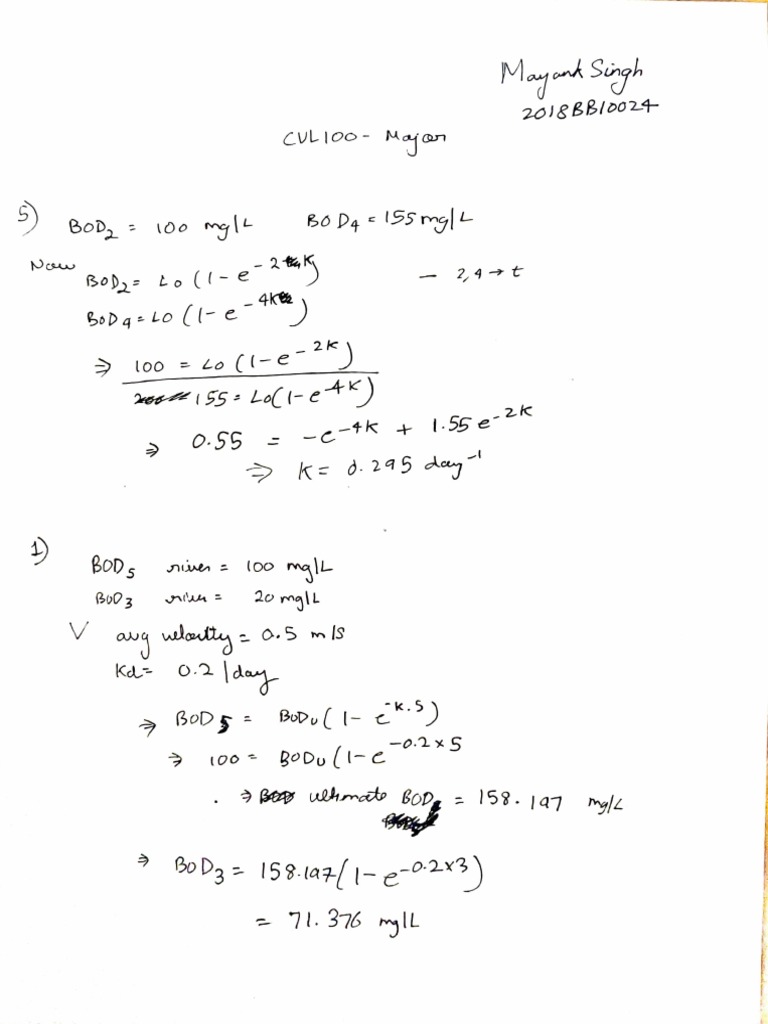 Mayank Singh
2018BB10024
CVL100 - Major
5) BOD₂ = 100 mg/L BOD₄ = 155 mg/L
Now BOD₂ = Lo (1-e^-2K) - 2,4 → t
BOD₄ = LO (1-e^-4K)
⇒ 100 = Lo (1-e^-2K)
155 = Lo(1-e^-4K)
⇒ 0.55 = -e^-4K + 1.55 e^-2K
⇒ K = 0.295 day^-1
1) BOD₅ river = 100 mg/L
BOD₃ river = 20 mg/L
V avg velocity = 0.5 m/s
Kd = 0.2 /day
⇒ BOD₅ = BODu (1 - e^-K.5)
⇒ 100 = BODu (1-e^-0.2×5
. ⇒ ultimate BOD = 158.197 mg/L
⇒ BOD₃ = 158.197 (1-e^-0.2×3)
= 71.376 mg/L